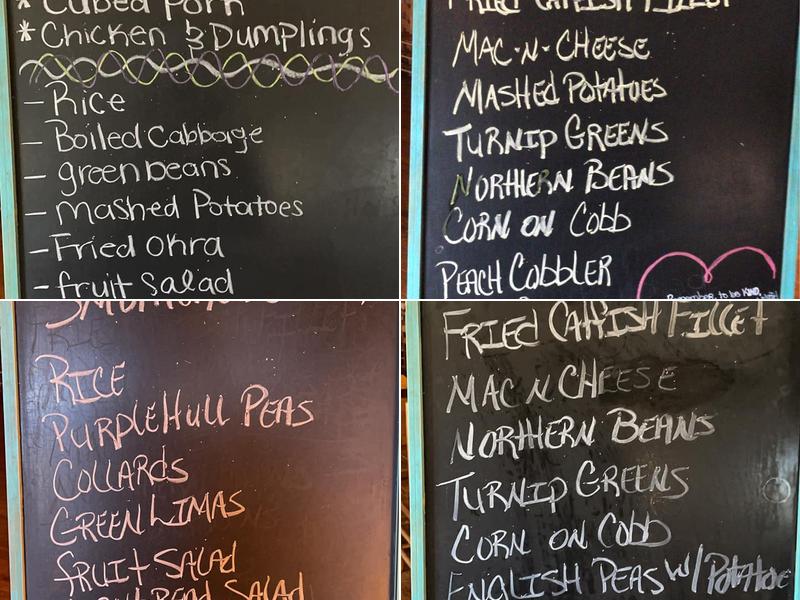 * Cubed Pork
* Chicken & Dumplings
- Rice
- Boiled Cabbage
- green beans
- Mashed Potatoes
- Fried Okra
- fruit Salad
FRIED CATFISH FILLET
MAC-N-CHEESE
MASHED POTATOES
TURNIP GREENS
NORTHERN BEANS
CORN ON COBB
PEACH COBBLER
Remember, to be KIND,
RICE
PURPLEHULL PEAS
COLLARDS
GREEN LIMAS
fRUIT SALAD
SALAD
FRIED CATFISH FILLET
MAC N CHEESE
NORTHERN BEANS
TURNIP GREENS
CORN ON COBB
ENGLISH PEAS W/ POTATOE